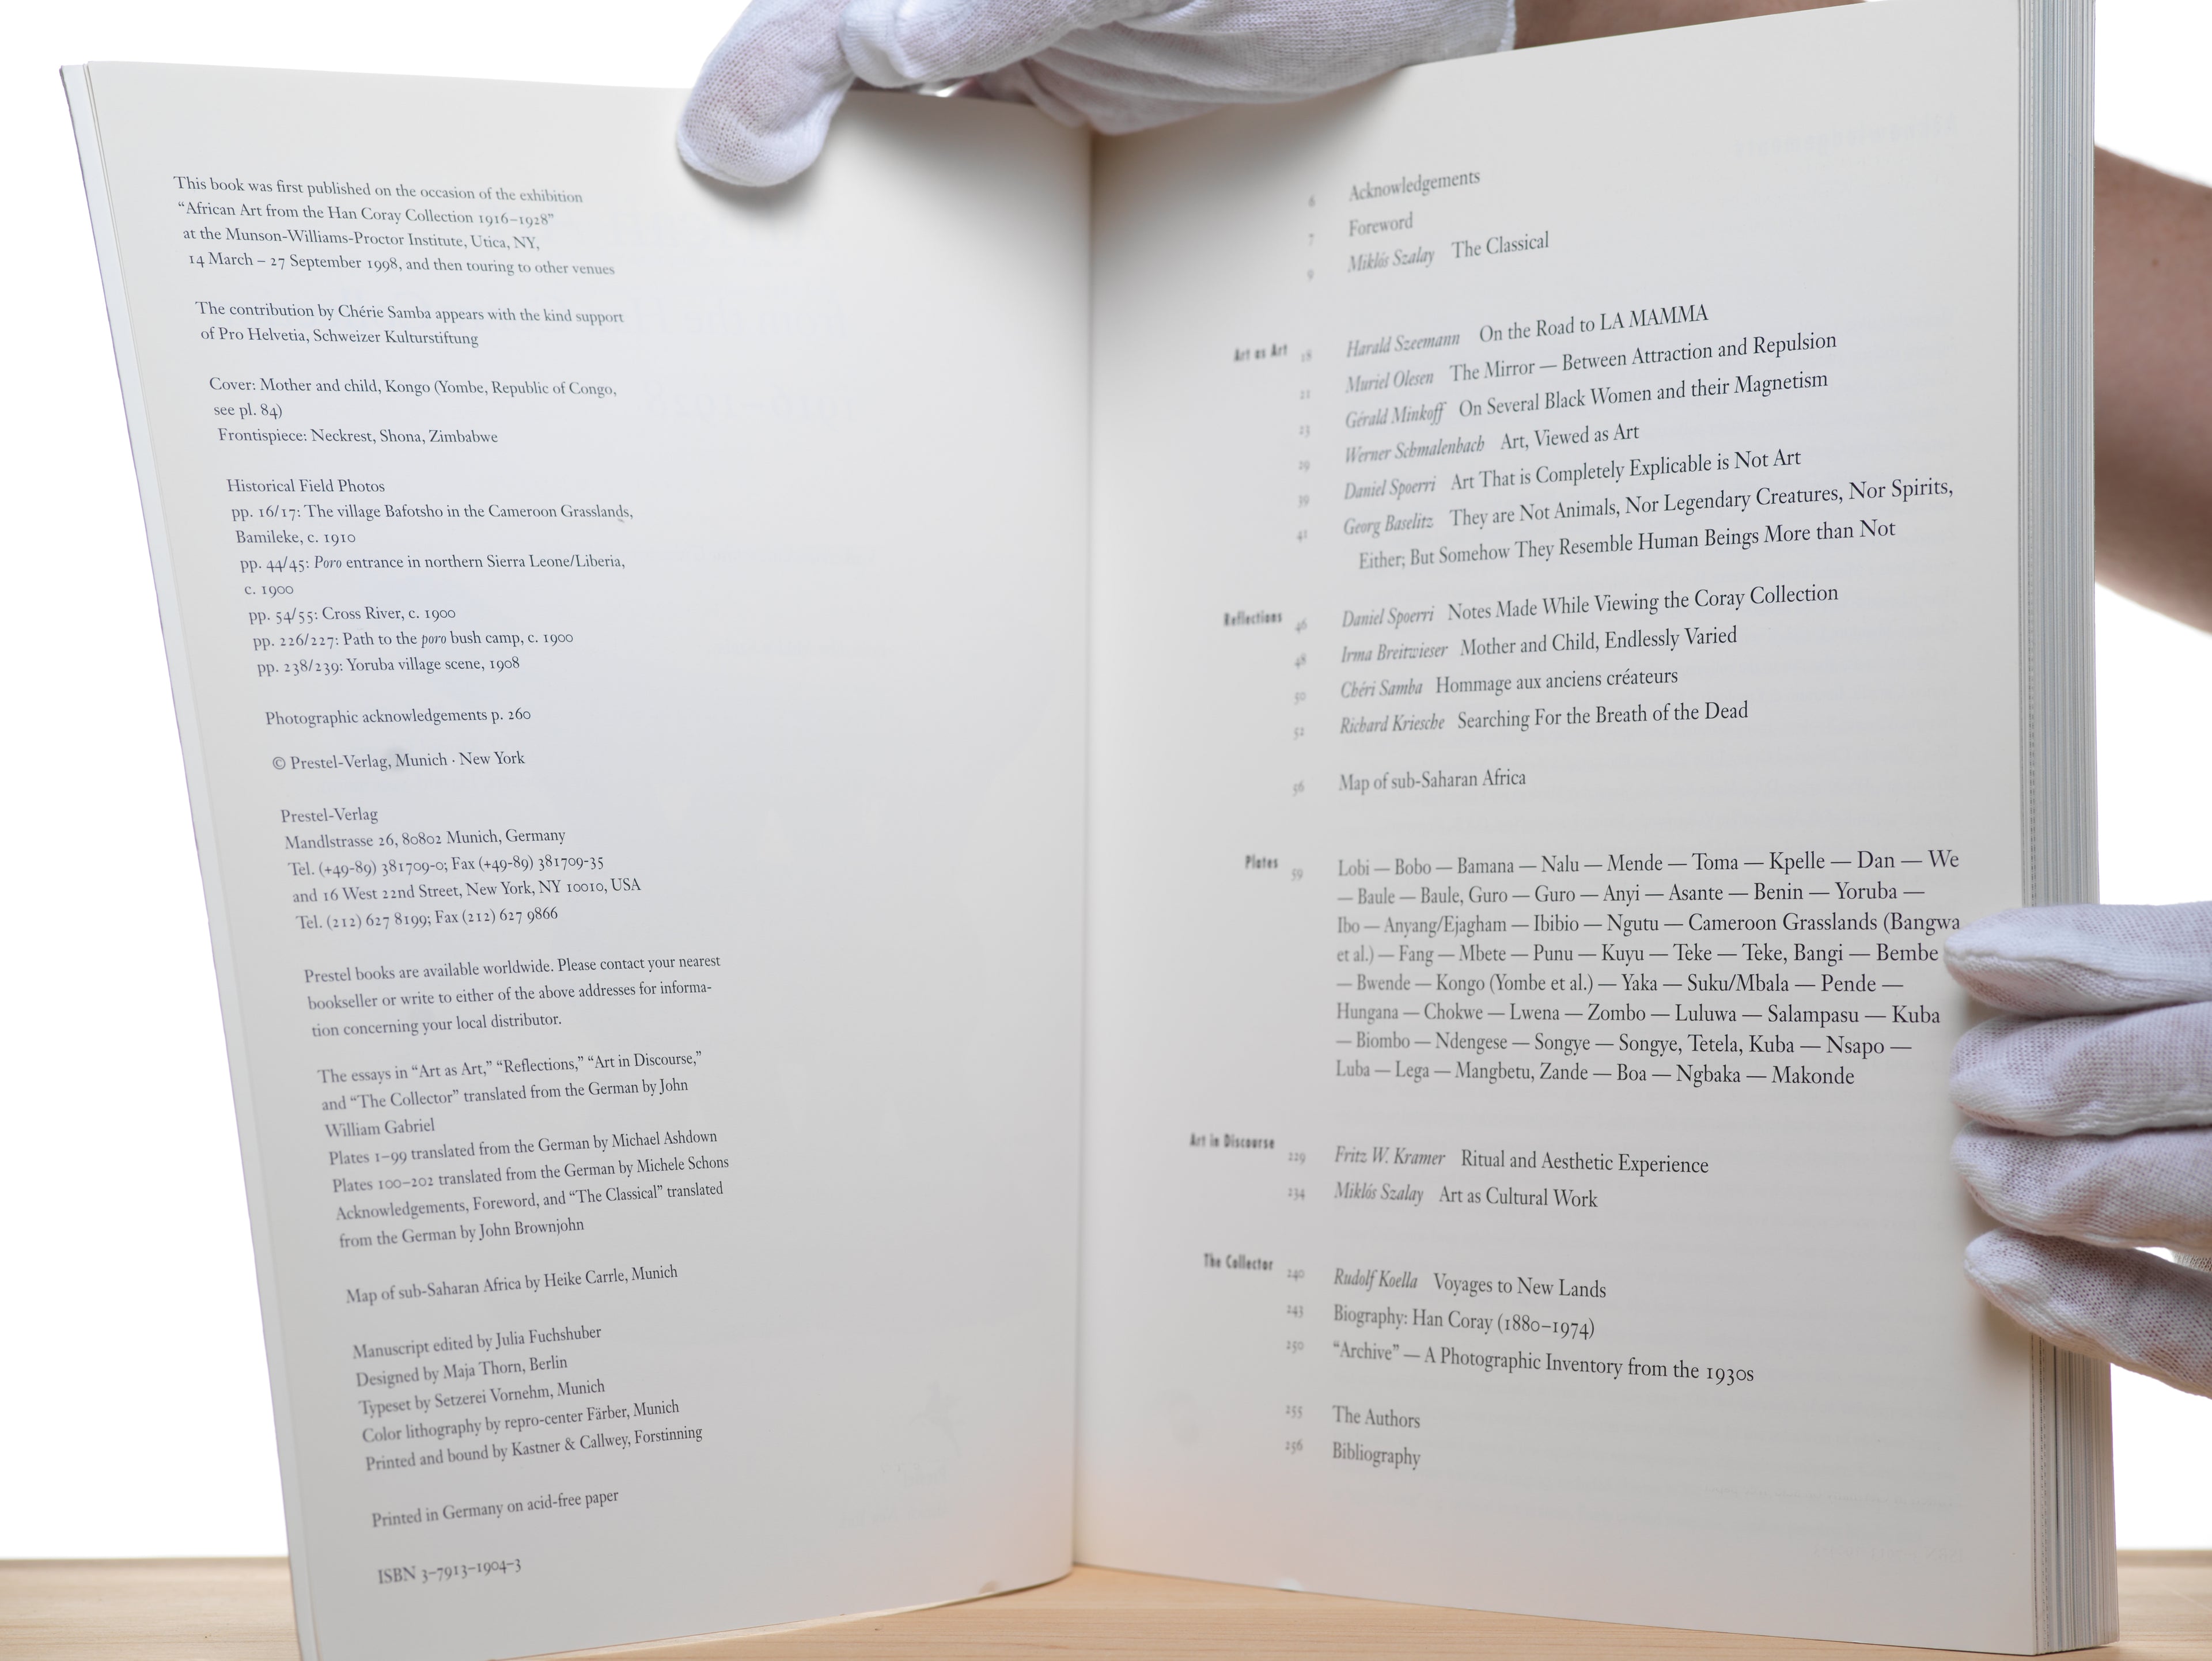 This book was first published on the occasion of the exhibition
“African Art from the Han Coray Collection 1916–1928”
at the Munson-Williams-Proctor Institute, Utica, NY,
14 March – 27 September 1998, and then touring to other venues
The contribution by Chérie Samba appears with the kind support
of Pro Helvetia, Schweizer Kulturstiftung
Cover: Mother and child, Kongo (Yombe, Republic of Congo,
see pl. 84)
Frontispiece: Neckrest, Shona, Zimbabwe
Historical Field Photos
pp. 16/17: The village Bafotsho in the Cameroon Grasslands,
Bamileke, c. 1910
pp. 44/45: Poro entrance in northern Sierra Leone/Liberia,
c. 1900
pp. 54/55: Cross River, c. 1900
pp. 226/227: Path to the poro bush camp, c. 1900
pp. 238/239: Yoruba village scene, 1908
Photographic acknowledgements p. 260
© Prestel-Verlag, Munich · New York
Prestel-Verlag
Mandlstrasse 26, 80802 Munich, Germany
Tel. (+49-89) 381709-0; Fax (+49-89) 381709-35
and 16 West 22nd Street, New York, NY 10010, USA
Tel. (212) 627 8199; Fax (212) 627 9866
Prestel books are available worldwide. Please contact your nearest
bookseller or write to either of the above addresses for informa-
tion concerning your local distributor.
The essays in “Art as Art,” “Reflections,” “Art in Discourse,”
and “The Collector” translated from the German by John
William Gabriel
Plates 1–99 translated from the German by Michael Ashdown
Plates 100–202 translated from the German by Michele Schons
Acknowledgements, Foreword, and “The Classical” translated
from the German by John Brownjohn
Map of sub-Saharan Africa by Heike Carrle, Munich
Manuscript edited by Julia Fuchshuber
Designed by Maja Thorn, Berlin
Typeset by Setzerei Vornehm, Munich
Color lithography by repro-center Färber, Munich
Printed and bound by Kastner & Callwey, Forstinning
Printed in Germany on acid-free paper
ISBN 3-7913-1904-3
6 Acknowledgements
7 Foreword
9 Miklós Szalay The Classical
Art as Art 18 Harald Szeemann On the Road to LA MAMMA
21 Muriel Olesen The Mirror — Between Attraction and Repulsion
23 Gérald Minkoff On Several Black Women and their Magnetism
29 Werner Schmalenbach Art, Viewed as Art
39 Daniel Spoerri Art That is Completely Explicable is Not Art
41 Georg Baselitz They are Not Animals, Nor Legendary Creatures, Nor Spirits,
Either; But Somehow They Resemble Human Beings More than Not
Reflections 46 Daniel Spoerri Notes Made While Viewing the Coray Collection
48 Irma Breitwieser Mother and Child, Endlessly Varied
50 Chéri Samba Hommage aux anciens créateurs
52 Richard Kriesche Searching For the Breath of the Dead
56 Map of sub-Saharan Africa
Plates 59 Lobi — Bobo — Bamana — Nalu — Mende — Toma — Kpelle — Dan — We
— Baule — Baule, Guro — Guro — Anyi — Asante — Benin — Yoruba —
Ibo — Anyang/Ejagham — Ibibio — Ngutu — Cameroon Grasslands (Bangwa
et al.) — Fang — Mbete — Punu — Kuyu — Teke — Teke, Bangi — Bembe
— Bwende — Kongo (Yombe et al.) — Yaka — Suku/Mbala — Pende —
Hungana — Chokwe — Lwena — Zombo — Luluwa — Salampasu — Kuba
— Biombo — Ndengese — Songye — Songye, Tetela, Kuba — Nsapo —
Luba — Lega — Mangbetu, Zande — Boa — Ngbaka — Makonde
Art in Discourse 229 Fritz W. Kramer Ritual and Aesthetic Experience
234 Miklós Szalay Art as Cultural Work
The Collector 240 Rudolf Koella Voyages to New Lands
243 Biography: Han Coray (1880–1974)
250 “Archive” — A Photographic Inventory from the 1930s
255 The Authors
256 Bibliography